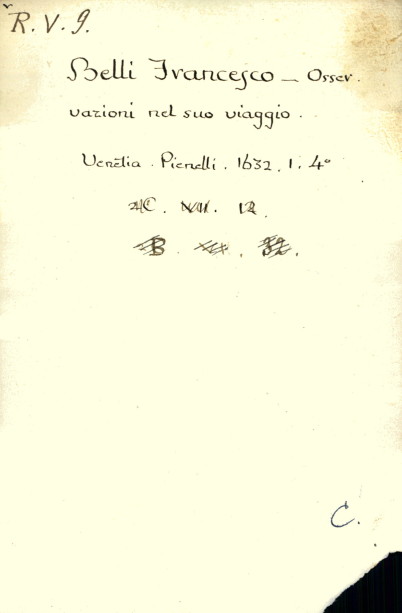 R. V. 9.
Belli Francesco — Osser.
vazioni nel suo viaggio.
Venetia. Pienelli. 1632. 1. 4°
C.